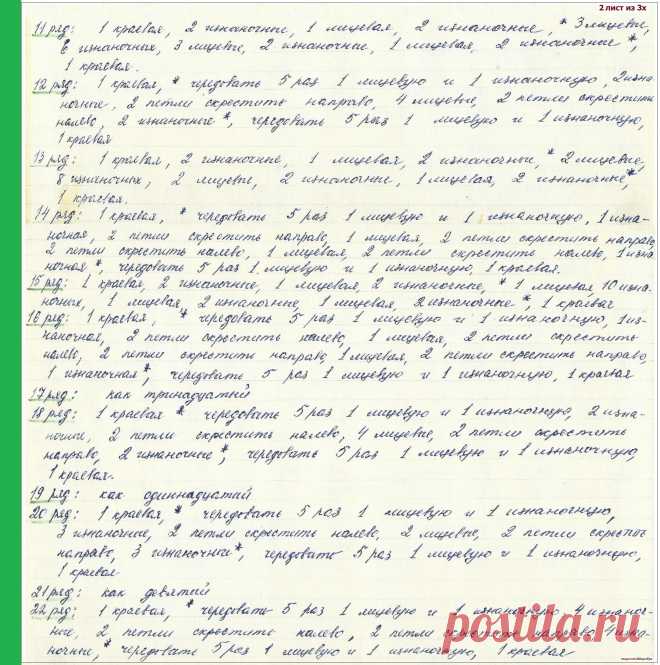 2 лист из 3х
11 ряд: 1 краевая, 2 изнаночные, 1 лицевая, 2 изнаночные, * 3 лицевые,
6 изнаночных, 3 лицевые, 2 изнаночные, 1 лицевая, 2 изнаночные *,
1 краевая.
12 ряд: 1 краевая, * чередовать 5 раз 1 лицевую и 1 изнаночную, 2 изна-
ночные, 2 петли скрестить направо, 4 лицевые, 2 петли скрестить
налево, 2 изнаночные *, чередовать 5 раз 1 лицевую и 1 изнаночную,
1 краевая
13 ряд: 1 краевая, 2 изнаночные, 1 лицевая, 2 изнаночные, * 2 лицевые,
8 изнаночных, 2 лицевые, 2 изнаночные, 1 лицевая, 2 изнаночные *,
1 краевая.
14 ряд: 1 краевая, * чередовать 5 раз 1 лицевую и 1 изнаночную, 1 изна-
ночная, 2 петли скрестить направо, 1 лицевая, 2 петли скрестить направо,
2 петли скрестить налево, 1 лицевая, 2 петли скрестить налево, 1 изна
ночная *, чередовать 5 раз 1 лицевую и 1 изнаночную, 1 краевая.
15 ряд: 1 краевая, 2 изнаночные, 1 лицевая, 2 изнаночные, * 1 лицевая, 10 изна-
ночных, 1 лицевая, 2 изнаночные, 1 лицевая, 2 изнаночные *, 1 краевая
16 ряд: 1 краевая, * чередовать 5 раз 1 лицевую и 1 изнаночную, 1 из-
наночная, 2 петли скрестить налево, 1 лицевая, 2 петли скрестить
налево, 2 петли скрестить направо, 1 лицевая, 2 петли скрестить направо,
1 изнаночная *, чередовать 5 раз 1 лицевую и 1 изнаночную, 1 краевая
17 ряд: как тринадцатый
18 ряд: 1 краевая * чередовать 5 раз 1 лицевую и 1 изнаночную, 2 изна-
ночные, 2 петли скрестить налево, 4 лицевые, 2 петли скрестить
направо, 2 изнаночные *, чередовать 5 раз 1 лицевую и 1 изнаночную,
1 краевая.
19 ряд: как одиннадцатый
20 ряд: 1 краевая, * чередовать 5 раз 1 лицевую и 1 изнаночную,
3 изнаночные, 2 петли скрестить налево, 2 лицевые, 2 петли скрестит
направо, 3 изнаночные *, чередовать 5 раз 1 лицевую и 1 изнаночную,
1 краевая
21 ряд: как девятый
22 ряд: 1 краевая, * чередовать 5 раз 1 лицевую и 1 изнаночную 4 изнаноч-
ные, 2 петли скрестить налево, 2 петли скрестить направо, 4 изна-
ночные, * чередовать 5 раз 1 лицевую и 1 изнаночную, 1 краевая
postila.ru